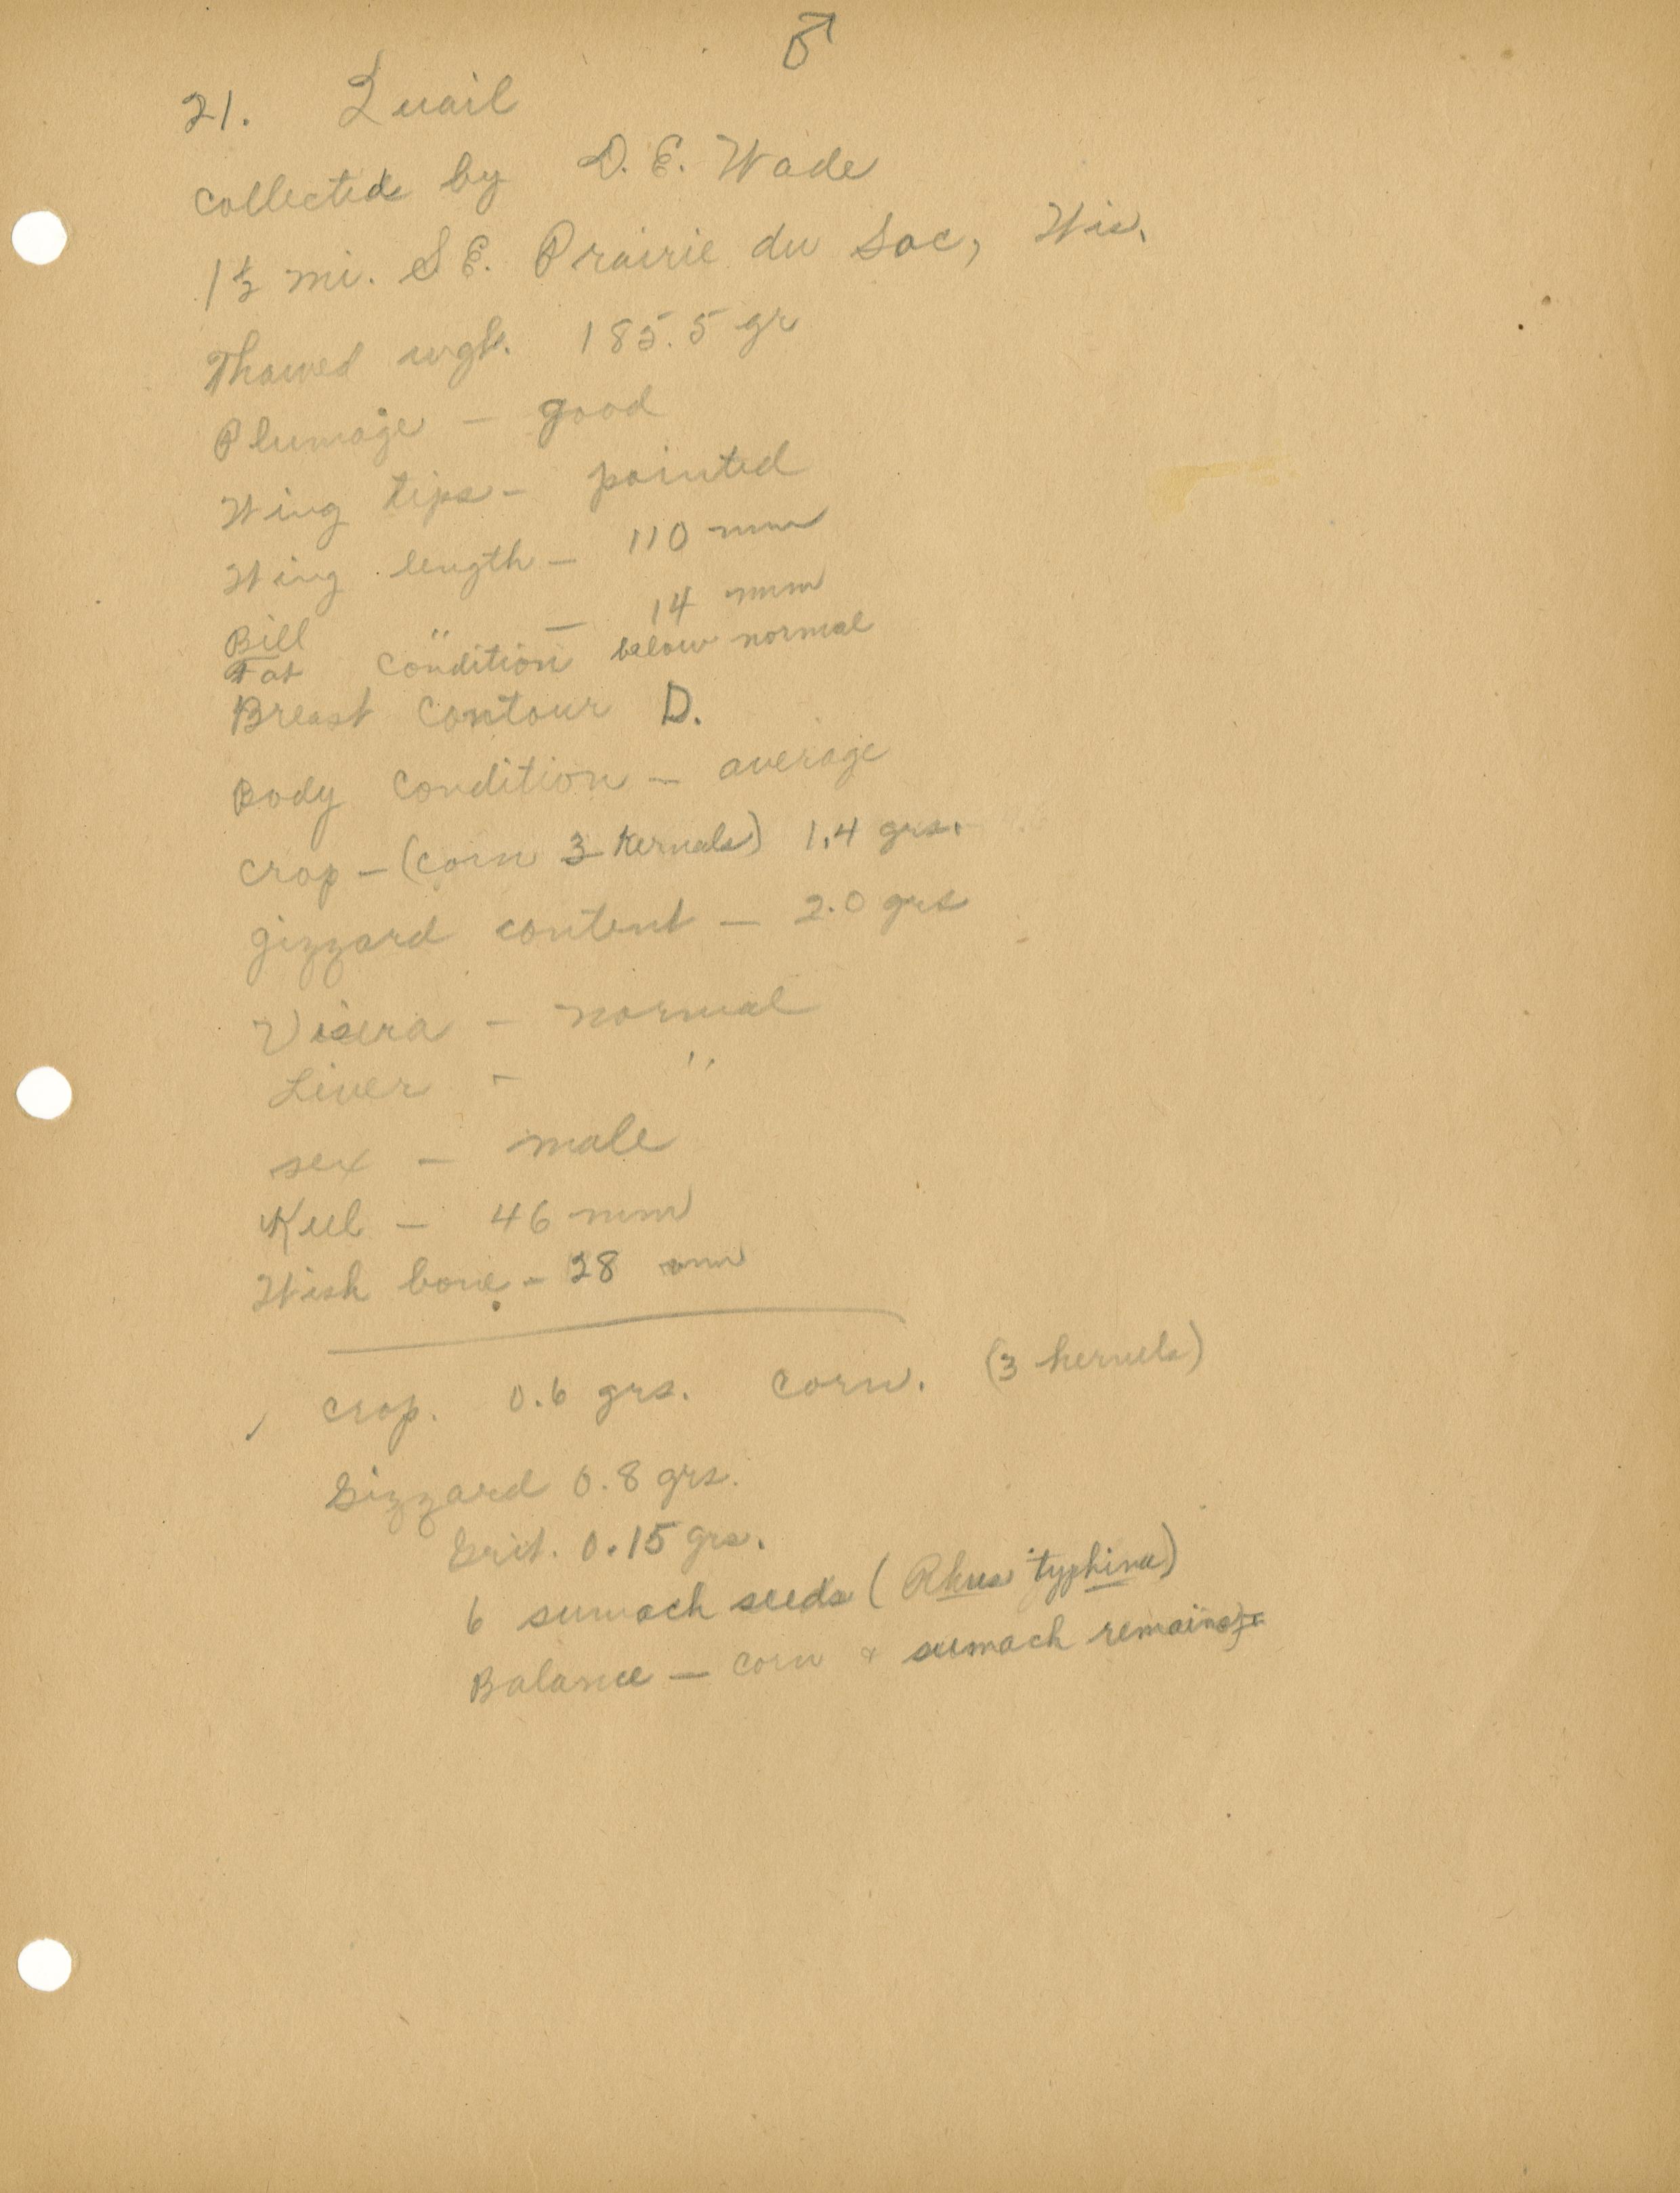 ♂
21. Quail
collected by D. E. Wade
1½ mi. S E. Prairie du Sac, Wis.
Thawed wght. 185.5 gr
Plumage – good
Wing tips – pointed
Wing length – 110 mm
Bill " – 14 mm
Fat condition below normal
Breast contour D.
Body condition – average
crop – (corn 3 kernals) 1.4 grs.
gizzard content – 2.0 grs
Visera – normal
Liver – "
sex – male
Keel – 46 mm
Wish bone – 28 mm
crop. 0.6 grs. corn. (3 kernels)
Gizzard 0.8 grs.
Grit. 0.15 grs.
6 sumach seeds (Rhus typhina)
Balance – corn & sumach remains